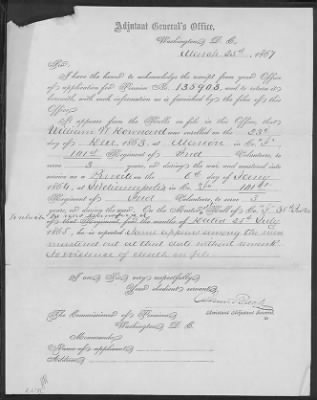 Adjutant General's Office,
Washington D. C.
March 25th, 1867
Sir:
I have the honor to acknowledge the receipt from your Office
of application for Pension No. 135903, and to return it
herewith, with such information as is furnished by the files of this
Office.
It appears from the Rolls on file in this Office, that
William W. was enrolled on the 23d
day of Dec, 1863, at Marion in Co. F
101st Regiment of Ind Volunteers, to
serve 3 years, or during the war, and mustered into
service as a Private on the 6th day of Jany,
1864, at Indianapolis, in Co. F 101st
Regiment of Ind Volunteers, to serve 3
years, or during the war. On the Muster Roll of Co. F
of that Regiment, for the months of dated 25th July
1865, he is reported name appears among the men
mustered out at that date without remark
No evidence of death on file
I am, Sir, very respectfully,
Your obedient servant,
Assistant Adjutant General.
The Commissioner of Pensions,
Washington D. C.
Memoranda:
Name of applicant
Address